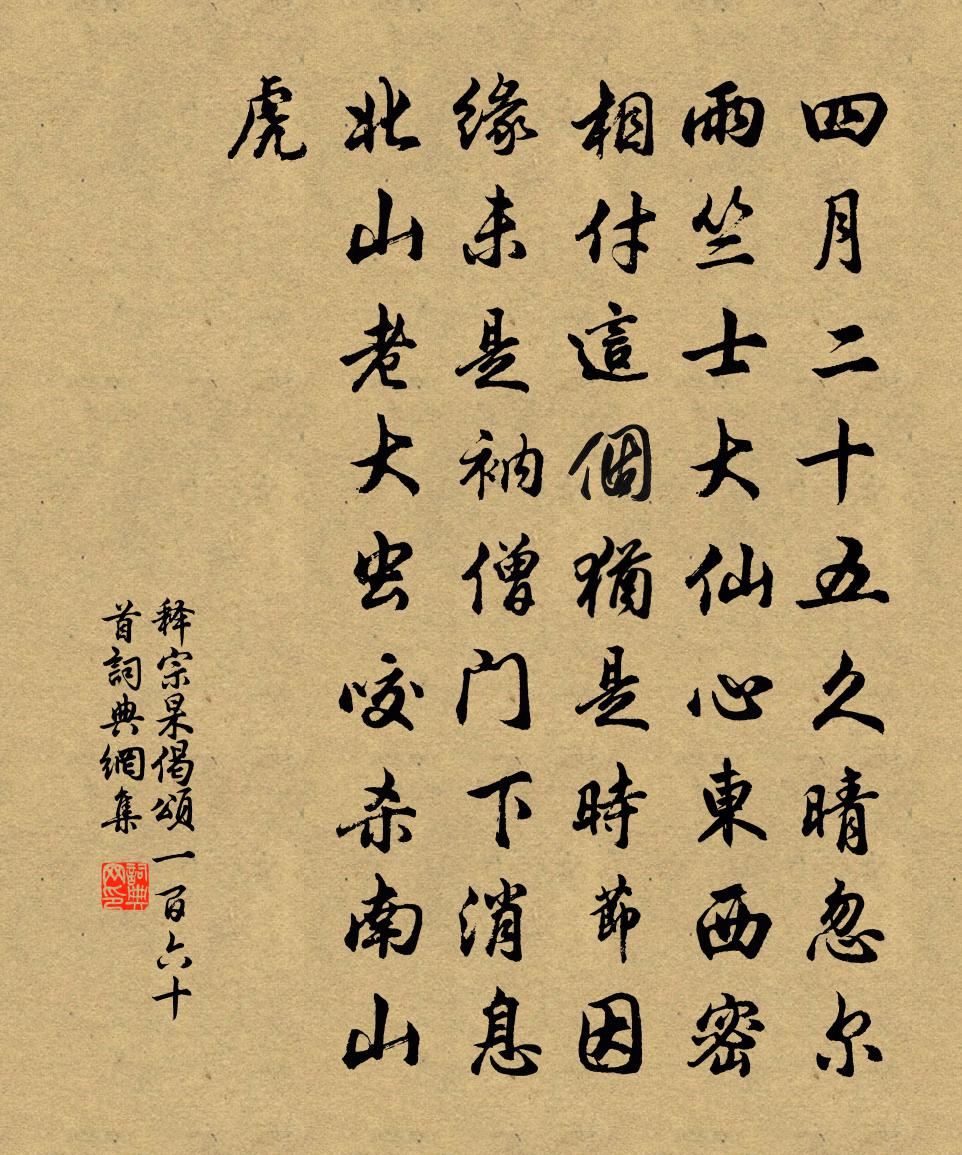 四月二十五久晴忽尔
雨竺士大仙心東西密
相付這個猶是時節因
緣未是衲僧门下消息
北山老大虫咬杀南山
虎
释宗杲偈頌一百六十
首詞典網集
詞典网印